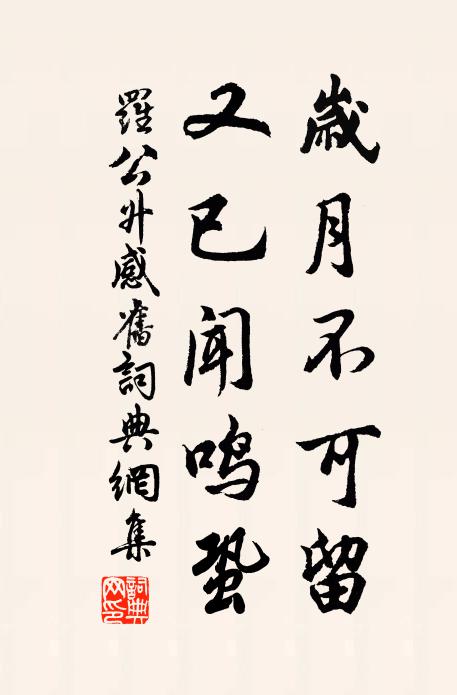 歲月不可留
又已聞鳴蛩
羅公升感舊詞典網集
詞典网印